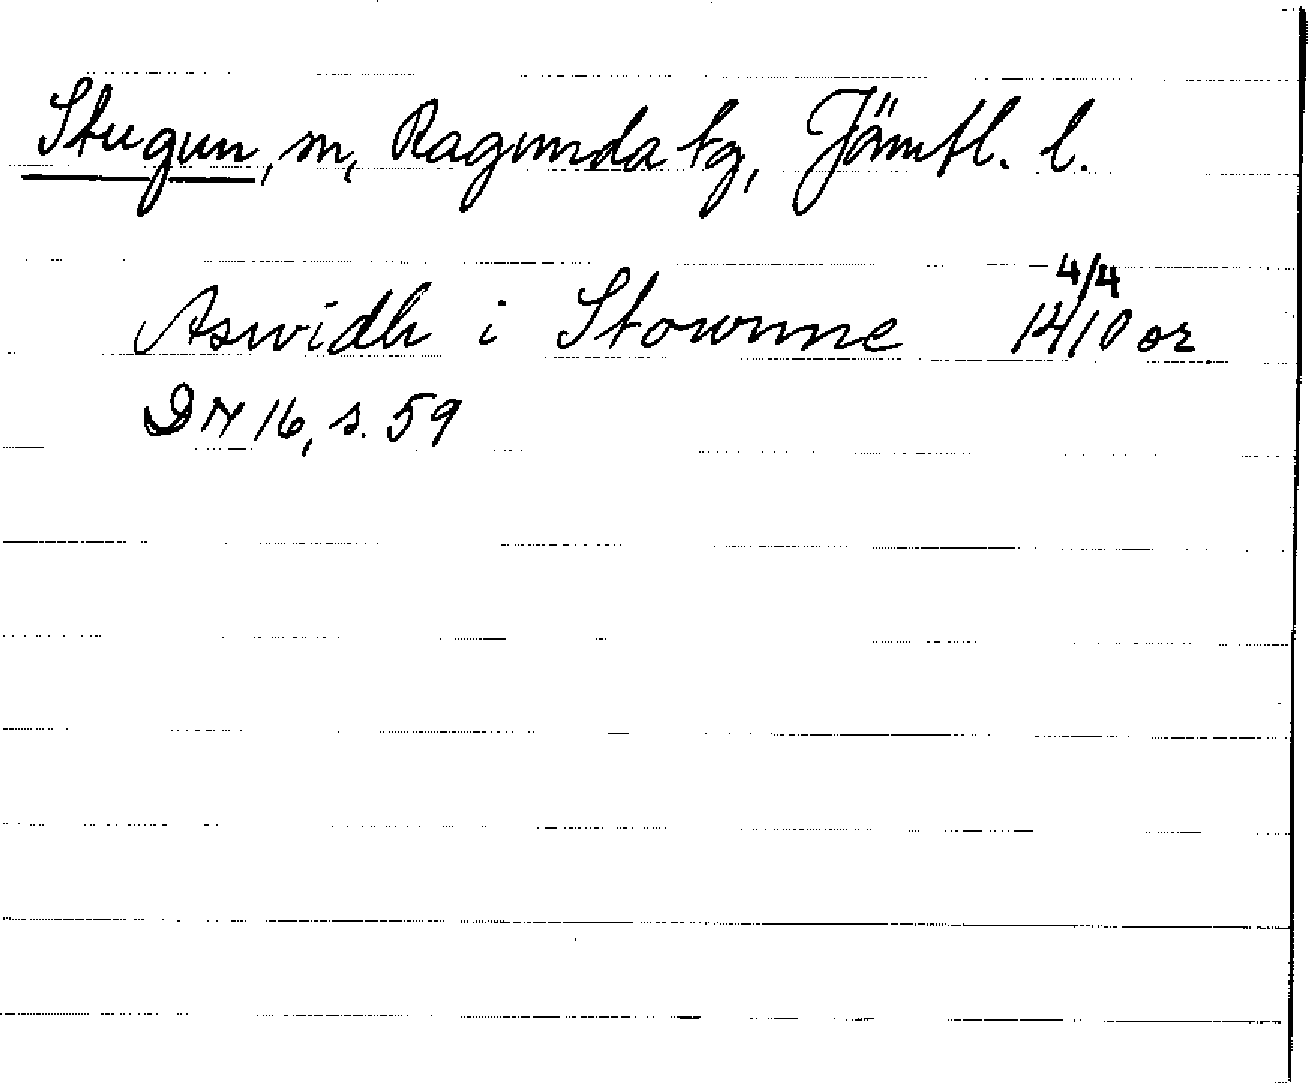 Stugun, m, Ragunda tg, Jämtl. l.
Aswidh i Stownne 4/4 1410 or
DN 16, s. 59